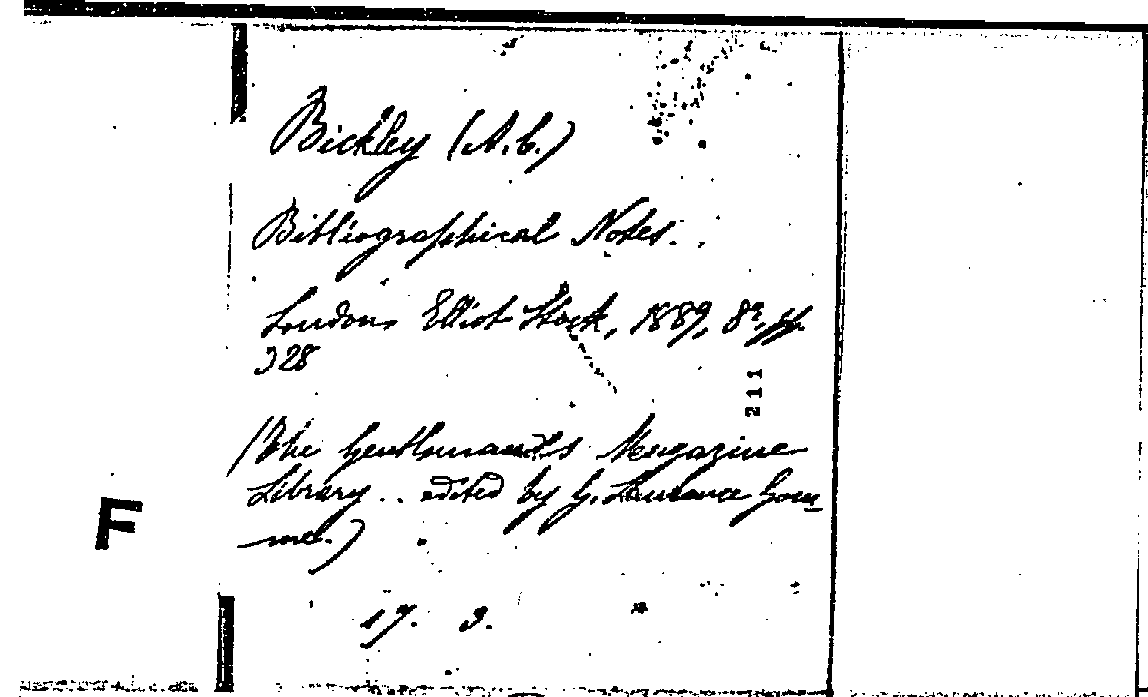 Bickley (A.C.)
Bibliographical Notes.
London, Elliot Stock, 1889, 8º, pp.
328
211
(The Gentleman's Magazine
Library .. edited by G. Laurence Gom
me.)
F
17. 3.